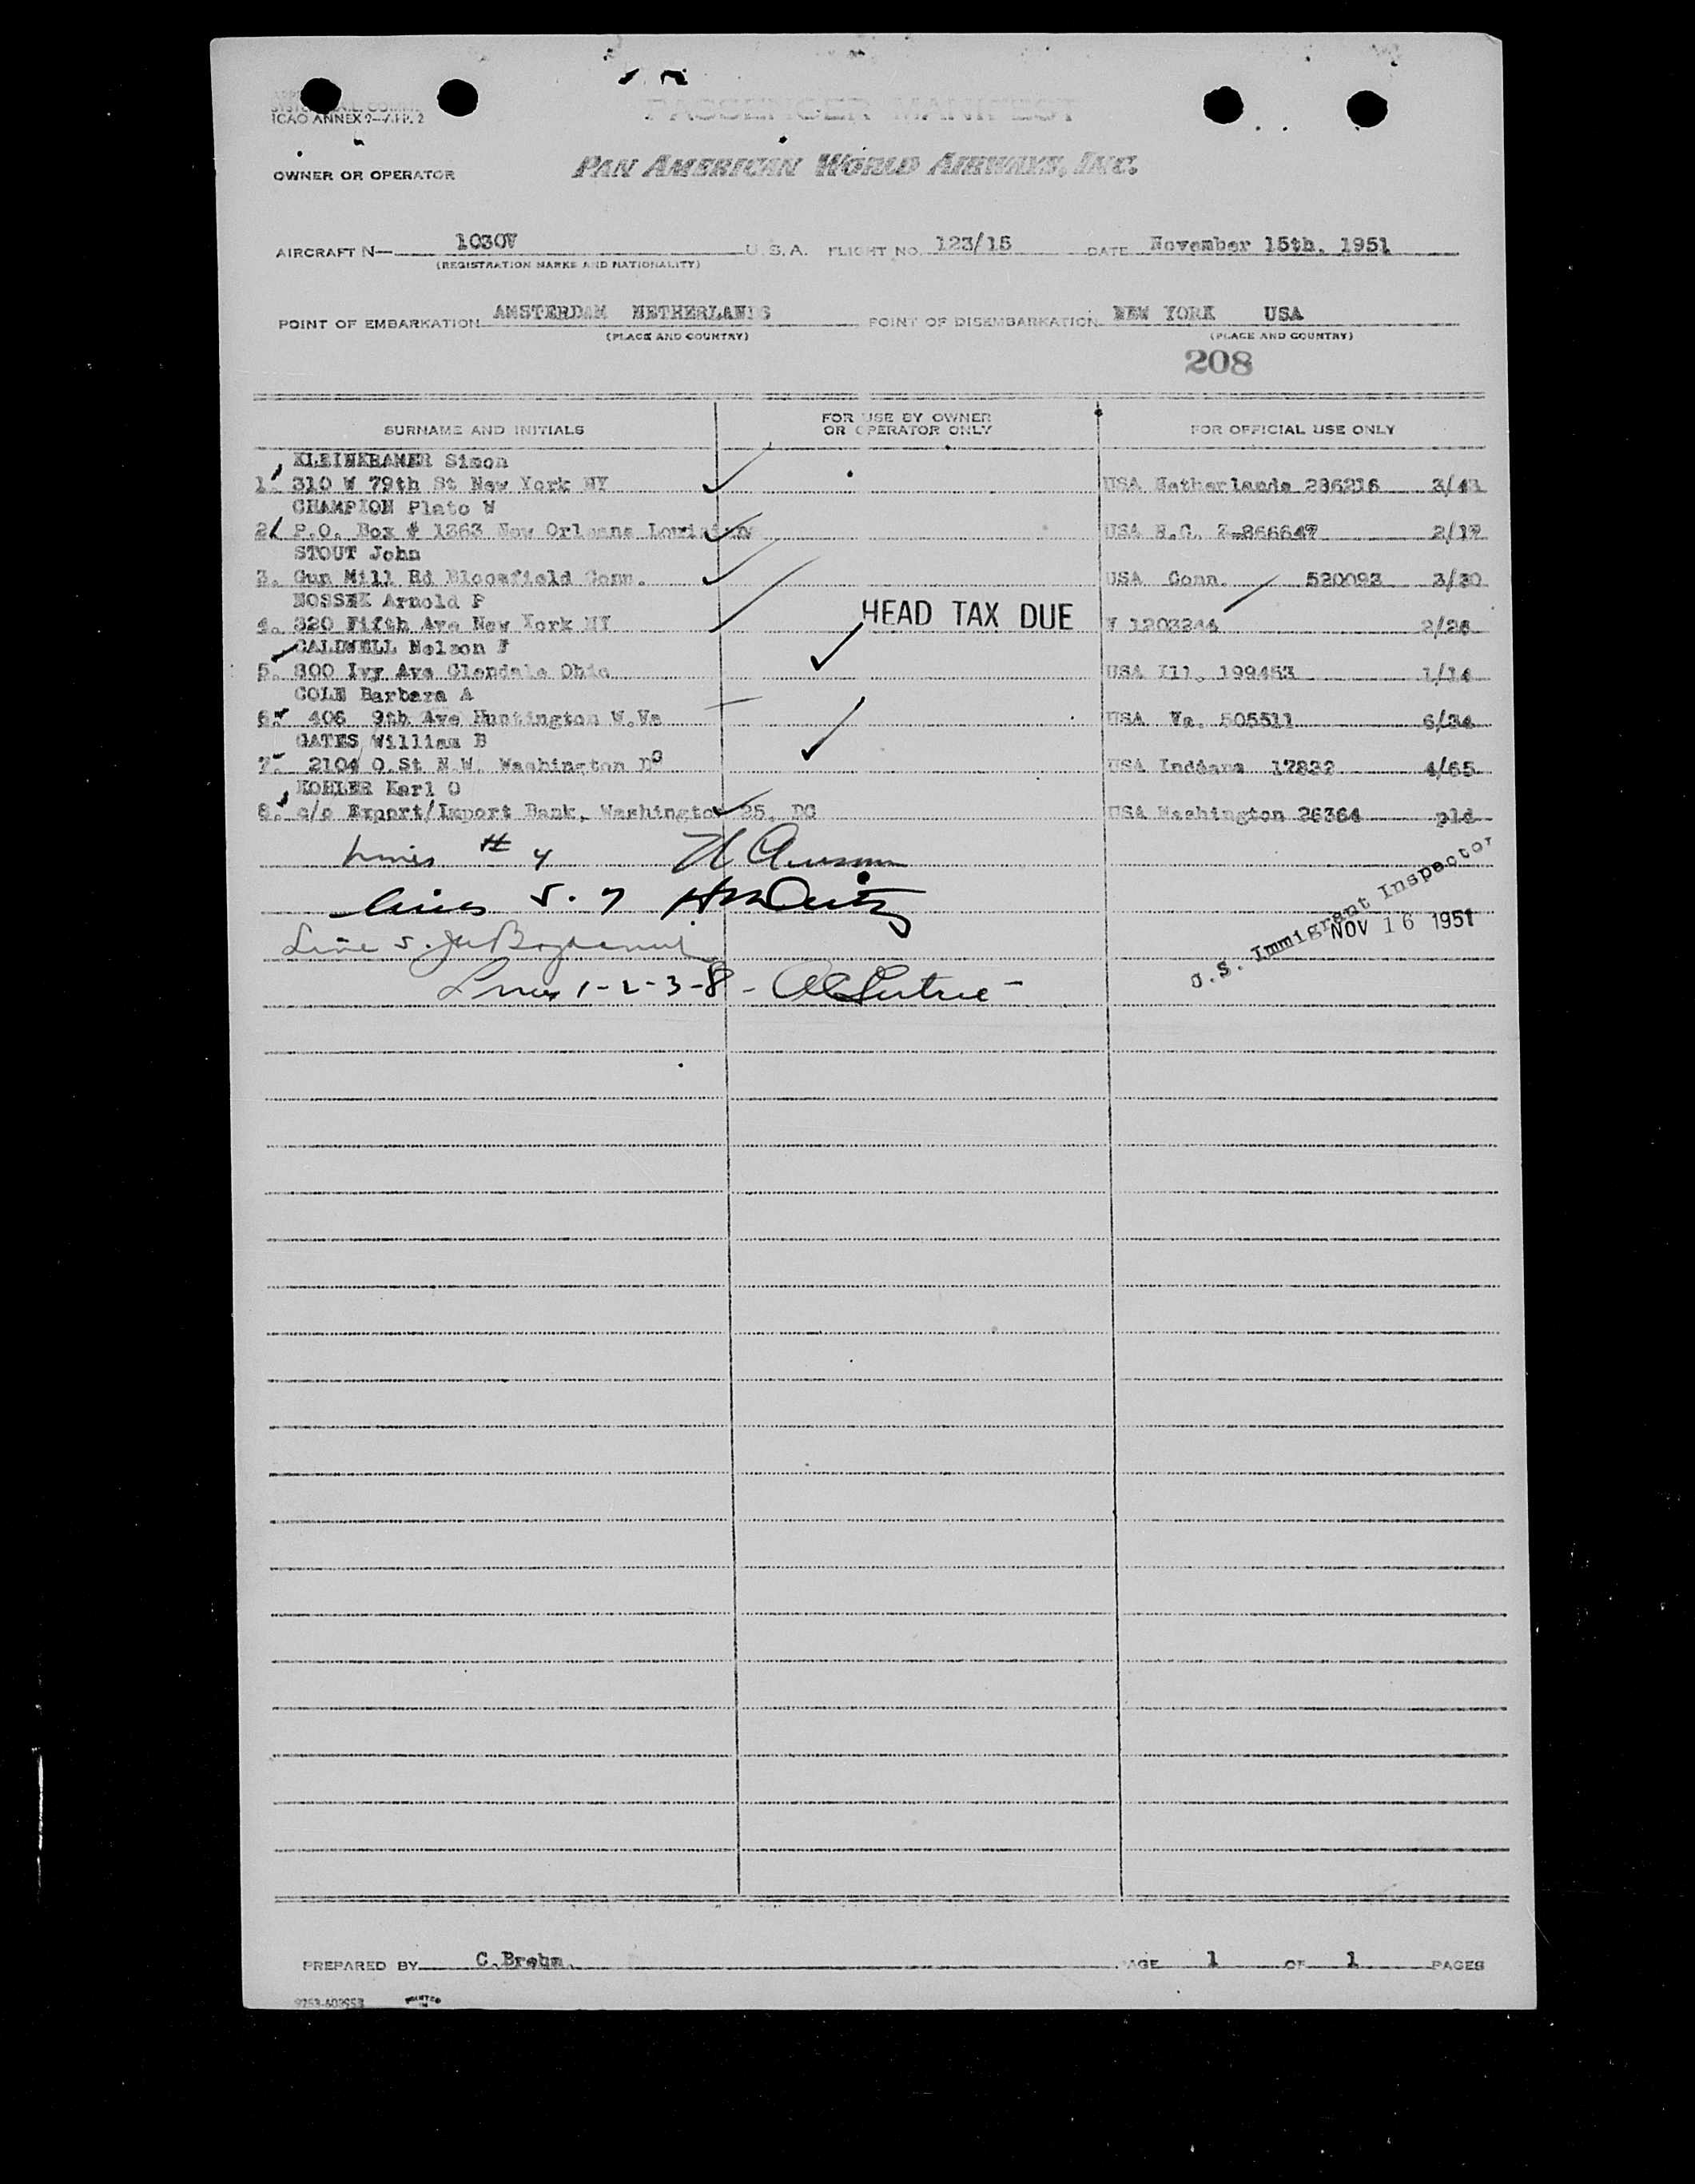 ICAO ANNEX 9—APP. 2
PASSENGER MANIFEST
OWNER OR OPERATOR
PAN AMERICAN WORLD AIRWAYS, INC.
AIRCRAFT N— 1030V U. S. A. FLIGHT NO. 123/15 DATE November 15th. 1951
(REGISTRATION MARKS AND NATIONALITY)
POINT OF EMBARKATION AMSTERDAM NETHERLANDS POINT OF DISEMBARKATION NEW YORK USA
(PLACE AND COUNTRY) (PLACE AND COUNTRY)
208
SURNAME AND INITIALS FOR USE BY OWNER OR OPERATOR ONLY FOR OFFICIAL USE ONLY
KLEINKRAMER Simon
1. 310 W 79th St New York NY USA Netherlands 286216 3/43
CHAMPION Plato W
2. P.O. Box # 1363 New Orleans USA 2/17
STOUT John
3. Gun Mill Rd Bloomfield Conn. USA Conn. 520093 3/30
NOSSEK Arnold P
4. 320 Fifth Ave New York NY HEAD TAX DUE V 1203244 2/26
CALDWELL Nelson F
5. 800 Ivy Ave Glendale Ohio USA Ill. 199453 1/14
COLE Barbara A
6. 406 9th Ave Huntington W.Va USA Va. 505511 6/34
GATES William B
7. 2104 O.St N.W. Washington DC USA Indiana 17832 4/65
KOHLER Karl O
8. c/o Export/Import Bank, Washington 25, DC USA Washington 26364 pld
Lines # 4
Lines 5. 7
Line 5.
Lines 1-2-3-8 -
U.S. Immigrant Inspector
NOV 16 1951
PREPARED BY C.Brehm. PAGE 1 OF 1 PAGES
PRINTED IN